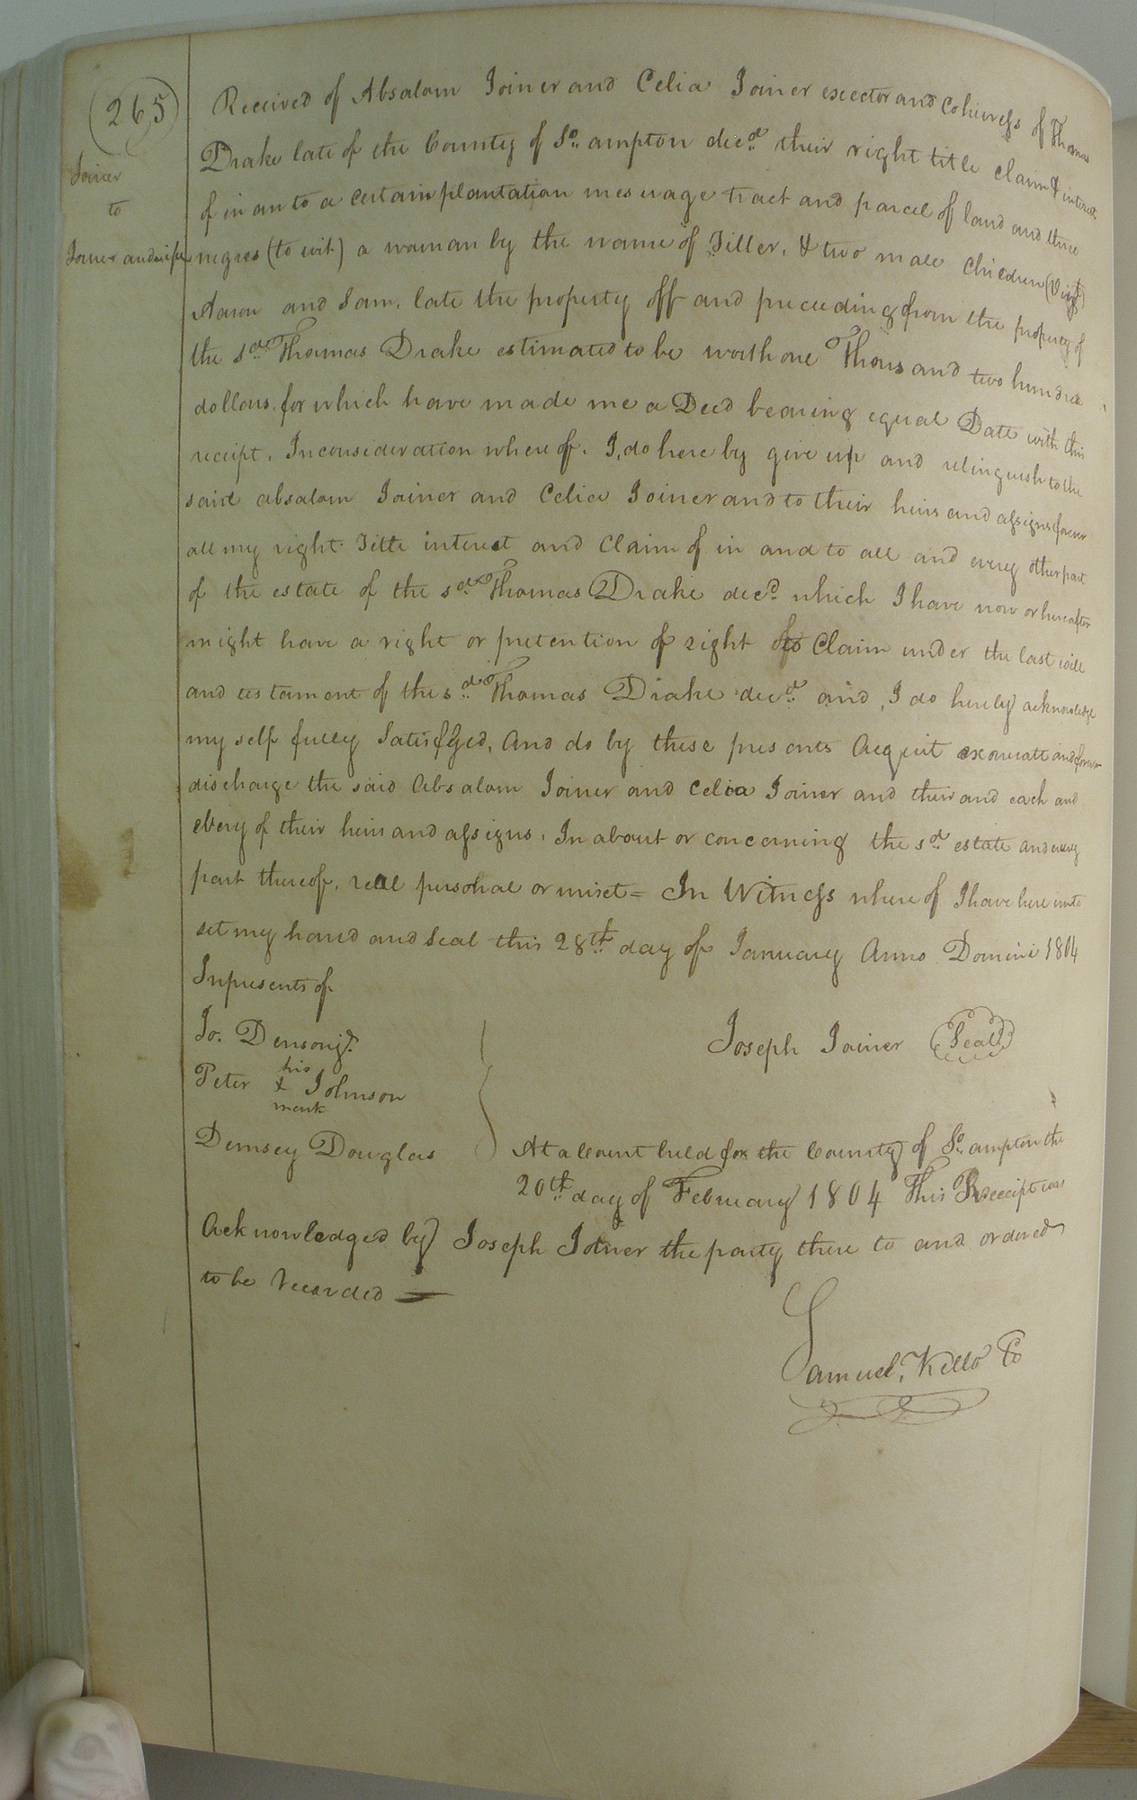 (265)
Joiner
to
Joiner and wife
Received of Absalom Joiner and Celia Joiner exector and Coheiress of Thomas
Drake late of the County of So. ampton decd. their right title claim & interest
of in an to a certain plantation mesuage tract and parcel of land and three
negros (to wit) a woman by the name of Tiller, & two male children (Viz)
Aaron and Sam, late the property off and preceeding from the property of
the sd. Thomas Drake estimated to be worth one Thousand two hundred
dollars, for which have made me a Deed bearing equal Date with this
receipt, Inconsideration where of, I, do here by give up and relinguish to the
said absalom Joiner and Celia Joiner and to their heirs and assigns forever
all my right Title interest and Claim of in and to all and every other part
of the estate of the sd. Thomas Drake decd. which I have now or hereafter
might have a right or pretention of right of Claim under the last will
and testament of the sd. Thomas Drake decd. and, I do hereby acknowledge
my self fully Satisfyed, And do by these presents Acquit exonerate and forever
discharge the said Absalom Joiner and Celia Joiner and their and each and
every of their heirs and assigns, In about or concerning the sd. estate and every
part thereof, reall personal or mixet = In Witness where of I have here unto
set my hand and Seal this 28th. day of January Anno Domini 1804
In presents of
Jo. Denson jr.
Joseph Joiner (Seal)
his
Peter x Johnson
mark
Demsey Douglas
At a Court held for the County of So. ampton the
20th. day of February 1804 This Receipt was
Acknowledged by Joseph Joiner the party there to and ordered
to be Recorded =
Samuel, Kello Co